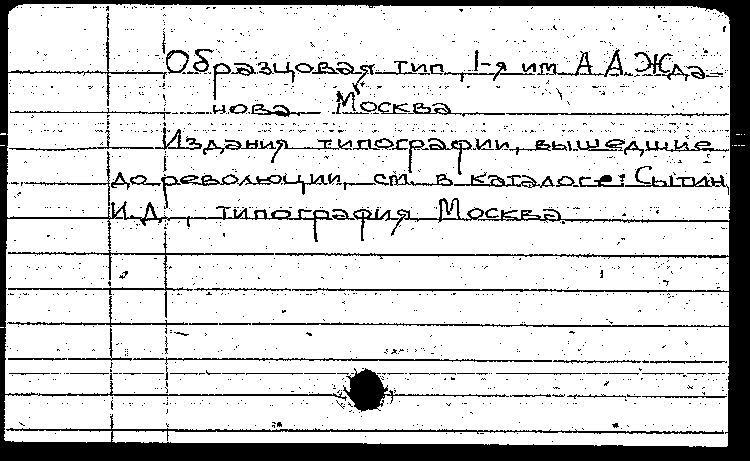 Образцовая тип., 1-я им. А. А. Жда-
нова. Москва.
Издания типографии, вышедшие
до революции, см. в каталоге: Сытин
И. Д., типография. Москва.